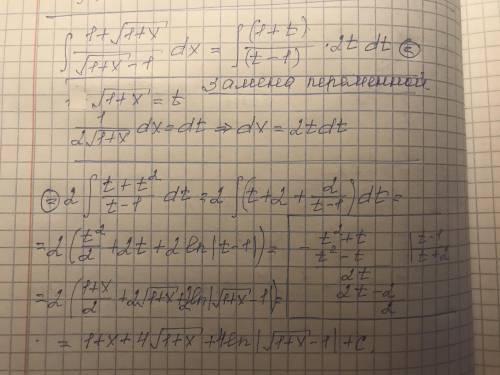 ∫ (1+√(1+x))/(√(1+x)−1) dx = ∫ (1+t)/(t−1) · 2t dt ⊜
√(1+x) = t замена переменной
1/(2√(1+x)) dx = dt ⇒ dx = 2tdt
⊜ 2 ∫ (t+t²)/(t−1) dt = 2 ∫ (t+2+2/(t−1)) dt =
= 2 (t²/2 + 2t + 2 ln|t−1|) =
= 2 ((1+x)/2 + 2√(1+x) + 2ln|√(1+x) − 1|) =
= 1+x+4√(1+x) + 4ln|√(1+x) −1| + c.
− t²+t | t−1
t²−t | t+2
2t
2t−2
2